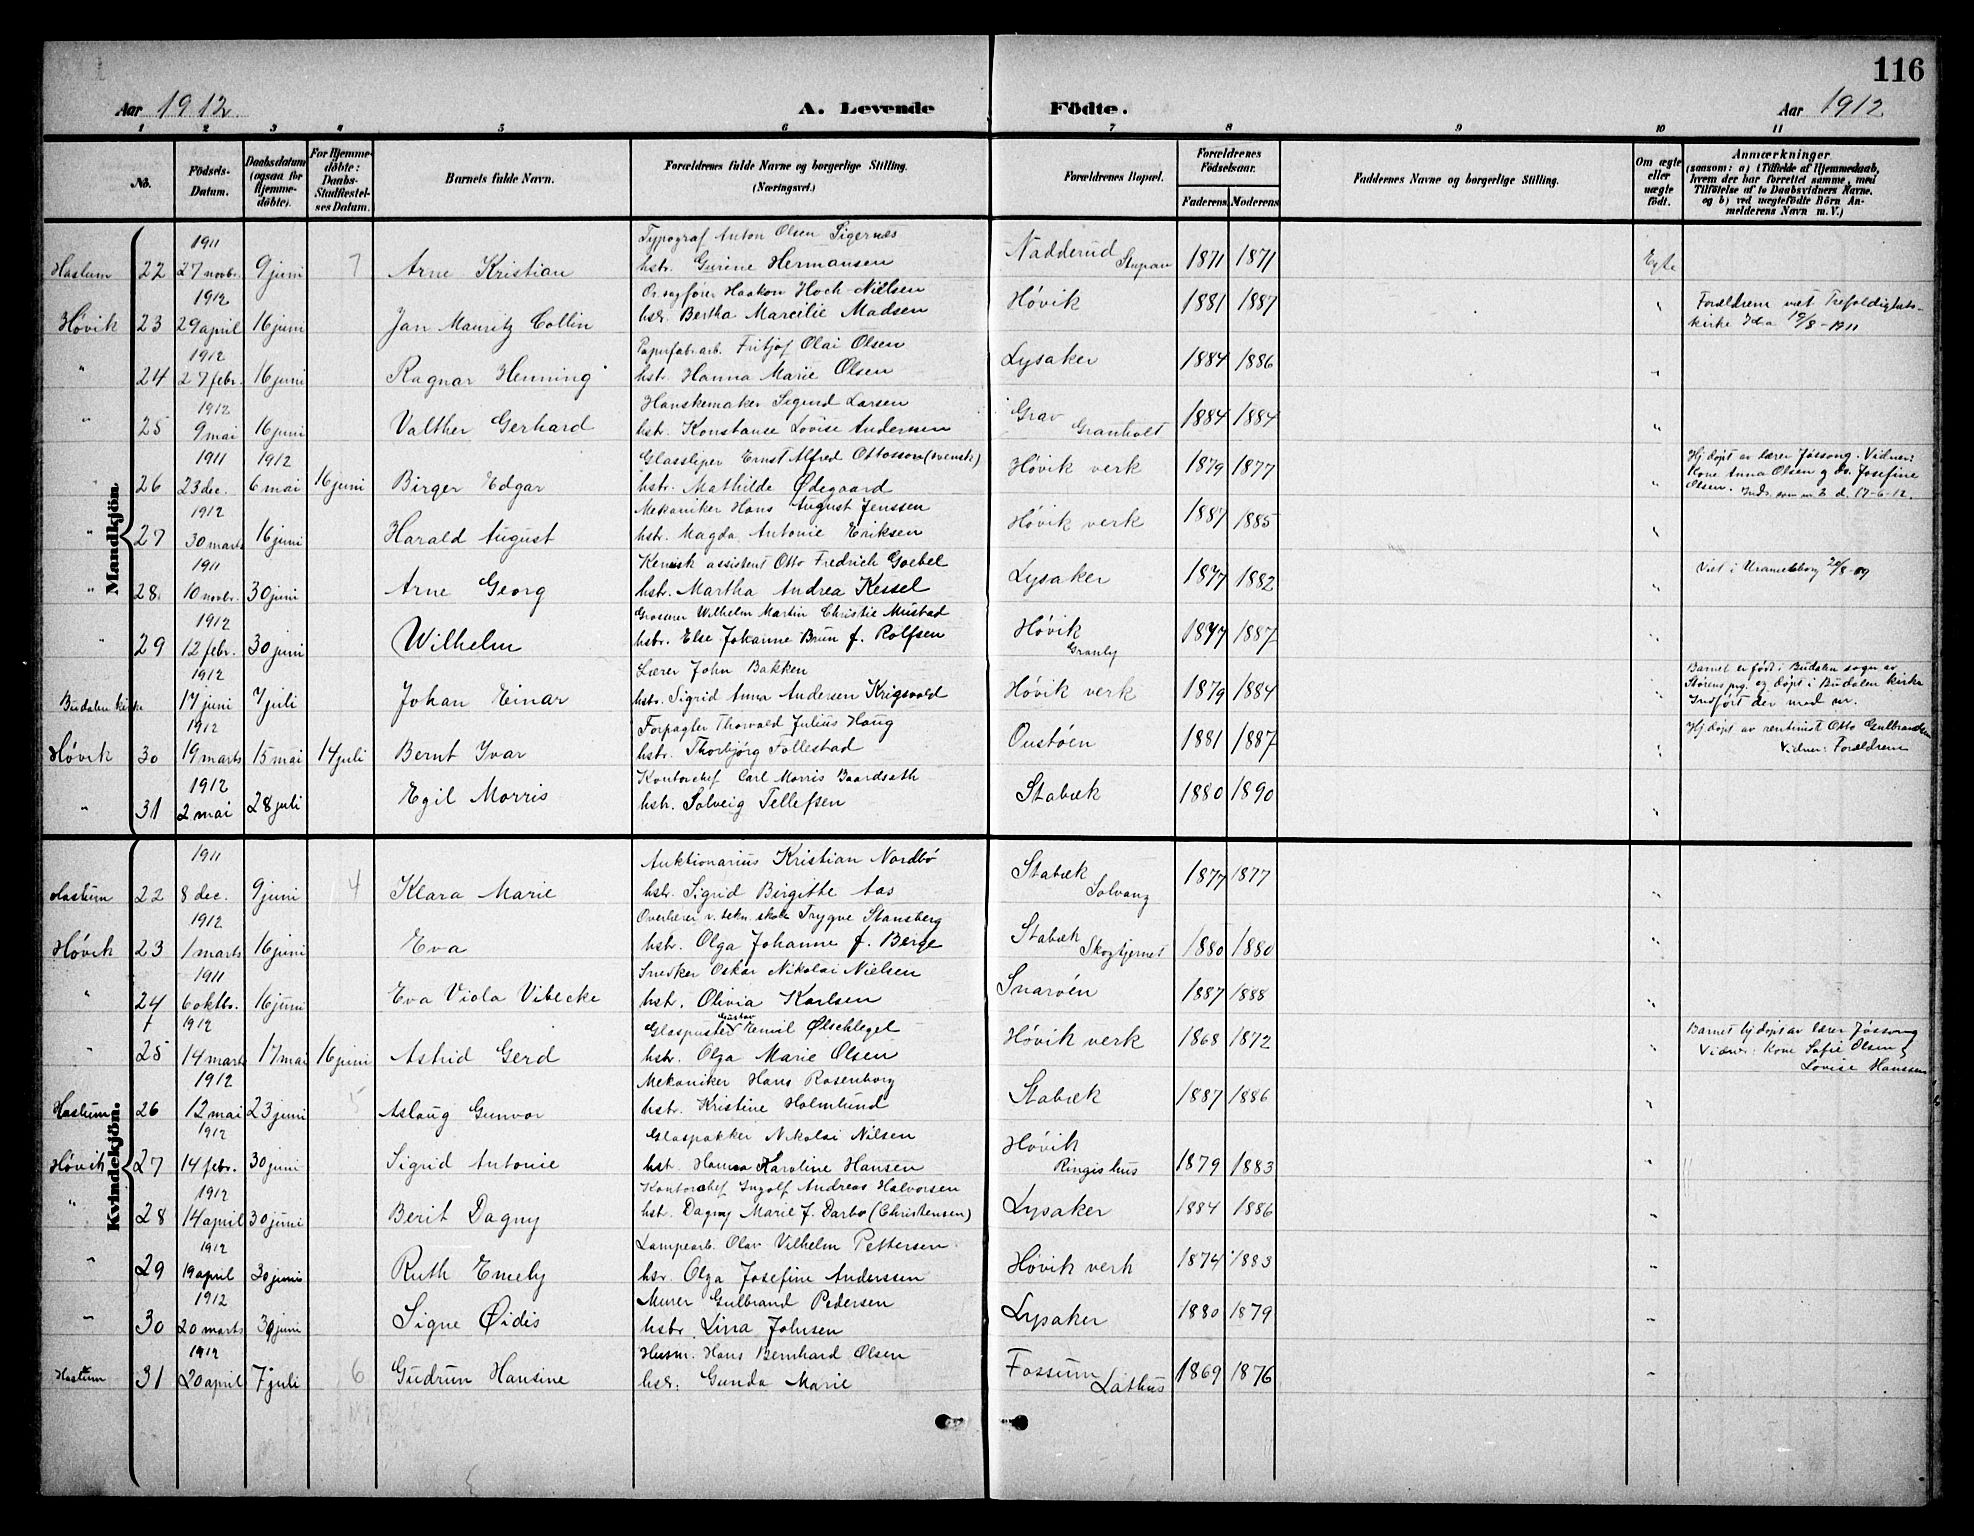 116
Aar 1912. A. Levende Födte. Aar 1912
1 2 3 4 5 6 7 8 9 10 11
No. Födsels-Datum. Daabsdatum (ogsaa for Hjemme-döbte). For Hjemme-döbte: Daabs-Stadfæstel-ses Datum. Barnets fulde Navn. Forældrenes fulde Navne og borgerlige Stilling. (Næringsvei.) Forældrenes Bopæl. Forældrenes Födselsaar. Faderens Moderens Faddernes Navne og borgerlige Stilling. Om ægte eller uægte födt. Anmærkninger (saasom: a) i Tilfælde af Hjemmedaab, hvem der har forrettet samme, med Tilföielse af to Daabsvidners Navne, og b) ved uægtefödte Börn An-melderens Navn m. V.)
Mandkjön
1911 Typograf Anton Olsen Sigernæs
Haslum 22 27 novbr. 9 juni 7 Arne Kristian hstr. Gurine Hermansen Nadderud Stupan 1871 1871 Egte
1912 Haakon Hoch-Nielsen
Høvik 23 29 april 16 juni Jan Mauritz Collin hstr. Bertha Marcilie Madsen Høvik 1881 1887 " Forældrene viet Trefoldigheds-
kirke Kra 19/8-1911
1912 Papirfabrarb. Fritjof Olai Olsen
" 24 27 febr. 16 juni Ragnar Henning hstr. Hanna Marie Olsen Lysaker 1884 1886 "
1912 Hanskemaker Sigurd Larsen
" 25 9 mai 16 juni Valther Gerhard hstr. Konstance Lovise Andersen Grav Granholt 1884 1884 "
1911 1912 Glassliper Ernst Alfred Ottosson (svensk)
" 26 23 dec. 6 mai 16 juni Birger Edgar hstr. Mathilde Ødegaard Høvik verk 1879 1877 " Hj. døpt av lærer Jøssong. Vidner:
Kone Anna Olsen og do. Josefine
Olsen.
1912 Mekaniker Hans August Jenssen
" 27 30 marts 16 juni Harald August hstr. Magda Antonie Eriksen Høvik verk 1887 1885 "
1911 Kemisk assistent Otto Fredrich Goebel
" 28. 10 novbr. 30 juni Arne Georg hstr. Martha Andrea Kessel Lysaker 1877 1882 " Viet i Uranienborg 20/8-09
1912 Grosserer Wilhelm Martin Christie Mustad
" 29 12 febr. 30 juni Wilhelm hstr. Else Johanne Brun f. Rolfsen Høvik Granly 1877 1887 "
1912 Lærer John Bakken
Budalen kirke 17 juni 7 juli Johan Einar hstr. Sigrid Anna Andersen Krigsvold Høvik verk 1879 1884 " Barnet er født i Budalen sogn av
Størens prg. og døpt i Budalen kirke
Indført der med nr.
1912 Forpagter Thorvald Julius Haug
Høvik 30 19 marts 15 mai 14 juli Bernt Ivar hstr. Thorbjörg Follestad Oustøen 1881 1887 " Hj. døpt av rentenist Otto Gulbrandsen
Vidner: Forældrene
1912 Kontorchef Carl Morris Baardseth
" 31 2 mai 28 juli Egil Morris hstr. Solveig Tellefsen Stabæk 1880 1890 "
Kvindekjön.
1911 Auktionarius Kristian Nordbö
Haslum 22 8 dec. 9 juni 4 Klara Marie hstr. Sigrid Birgitte Aas Stabæk Solvang 1877 1877 "
1912 Overlærer v. tekn. skole Trygve Stansberg
Høvik 23 1 marts 16 juni Eva hstr. Olga Johanne f. Berge Stabæk Skogtjernet 1880 1880 "
1911 Snedker Oskar Nikolai Nielsen
" 24 6 oktbr. 16 juni Eva Viola Vibecke hstr. Olivia Karlsen Snarøen 1887 1888 "
1912 Glaspuster Gustav Emil Ølschlegel
" 25 14 marts 17 mai 16 juni Astrid Gerd hstr. Olga Marie Olsen Høvik verk 1868 1872 " Barnet hj. døpt av lærer Jøssong
Vidner: Kone Sofie Olsen &
Lovise Hanssen
1912 Mekaniker Hans Rosenborg
Haslum 26 12 mai 23 juni 5 Aslaug Gunvor hstr. Kristine Holmlund Stabæk 1887 1886 "
1912 Glaspakker Nikolai Nilsen
Høvik 27 14 febr. 30 juni Sigrid Antonie hstr. Hanna Karoline Hansen Høvik Ringishus 1879 1883 "
1912 Kontorchef Ingolf Andreas Halvorsen
" 28 14 april 30 juni Berit Dagny hstr. Dagny Marie f. Darbo (Christensen) Lysaker 1884 1886 "
1912 Lampearb. Olav Vilhelm Pettersen
" 29 19 april 30 juni Ruth Emely hstr. Olga Josefine Anderssen Høvik verk 1874 1883 "
1912 Murer Gulbrand Pedersen
" 30 20 marts 30 juni Signe Øidis hstr. Lina Johnsen Lysaker 1880 1879 "
1912 Husm. Hans Bernhard Olsen
Haslum 31 20 april 7 juli 6 Gudrun Hansine hstr. Gunda Marie Fossum Lathus 1869 1876 "